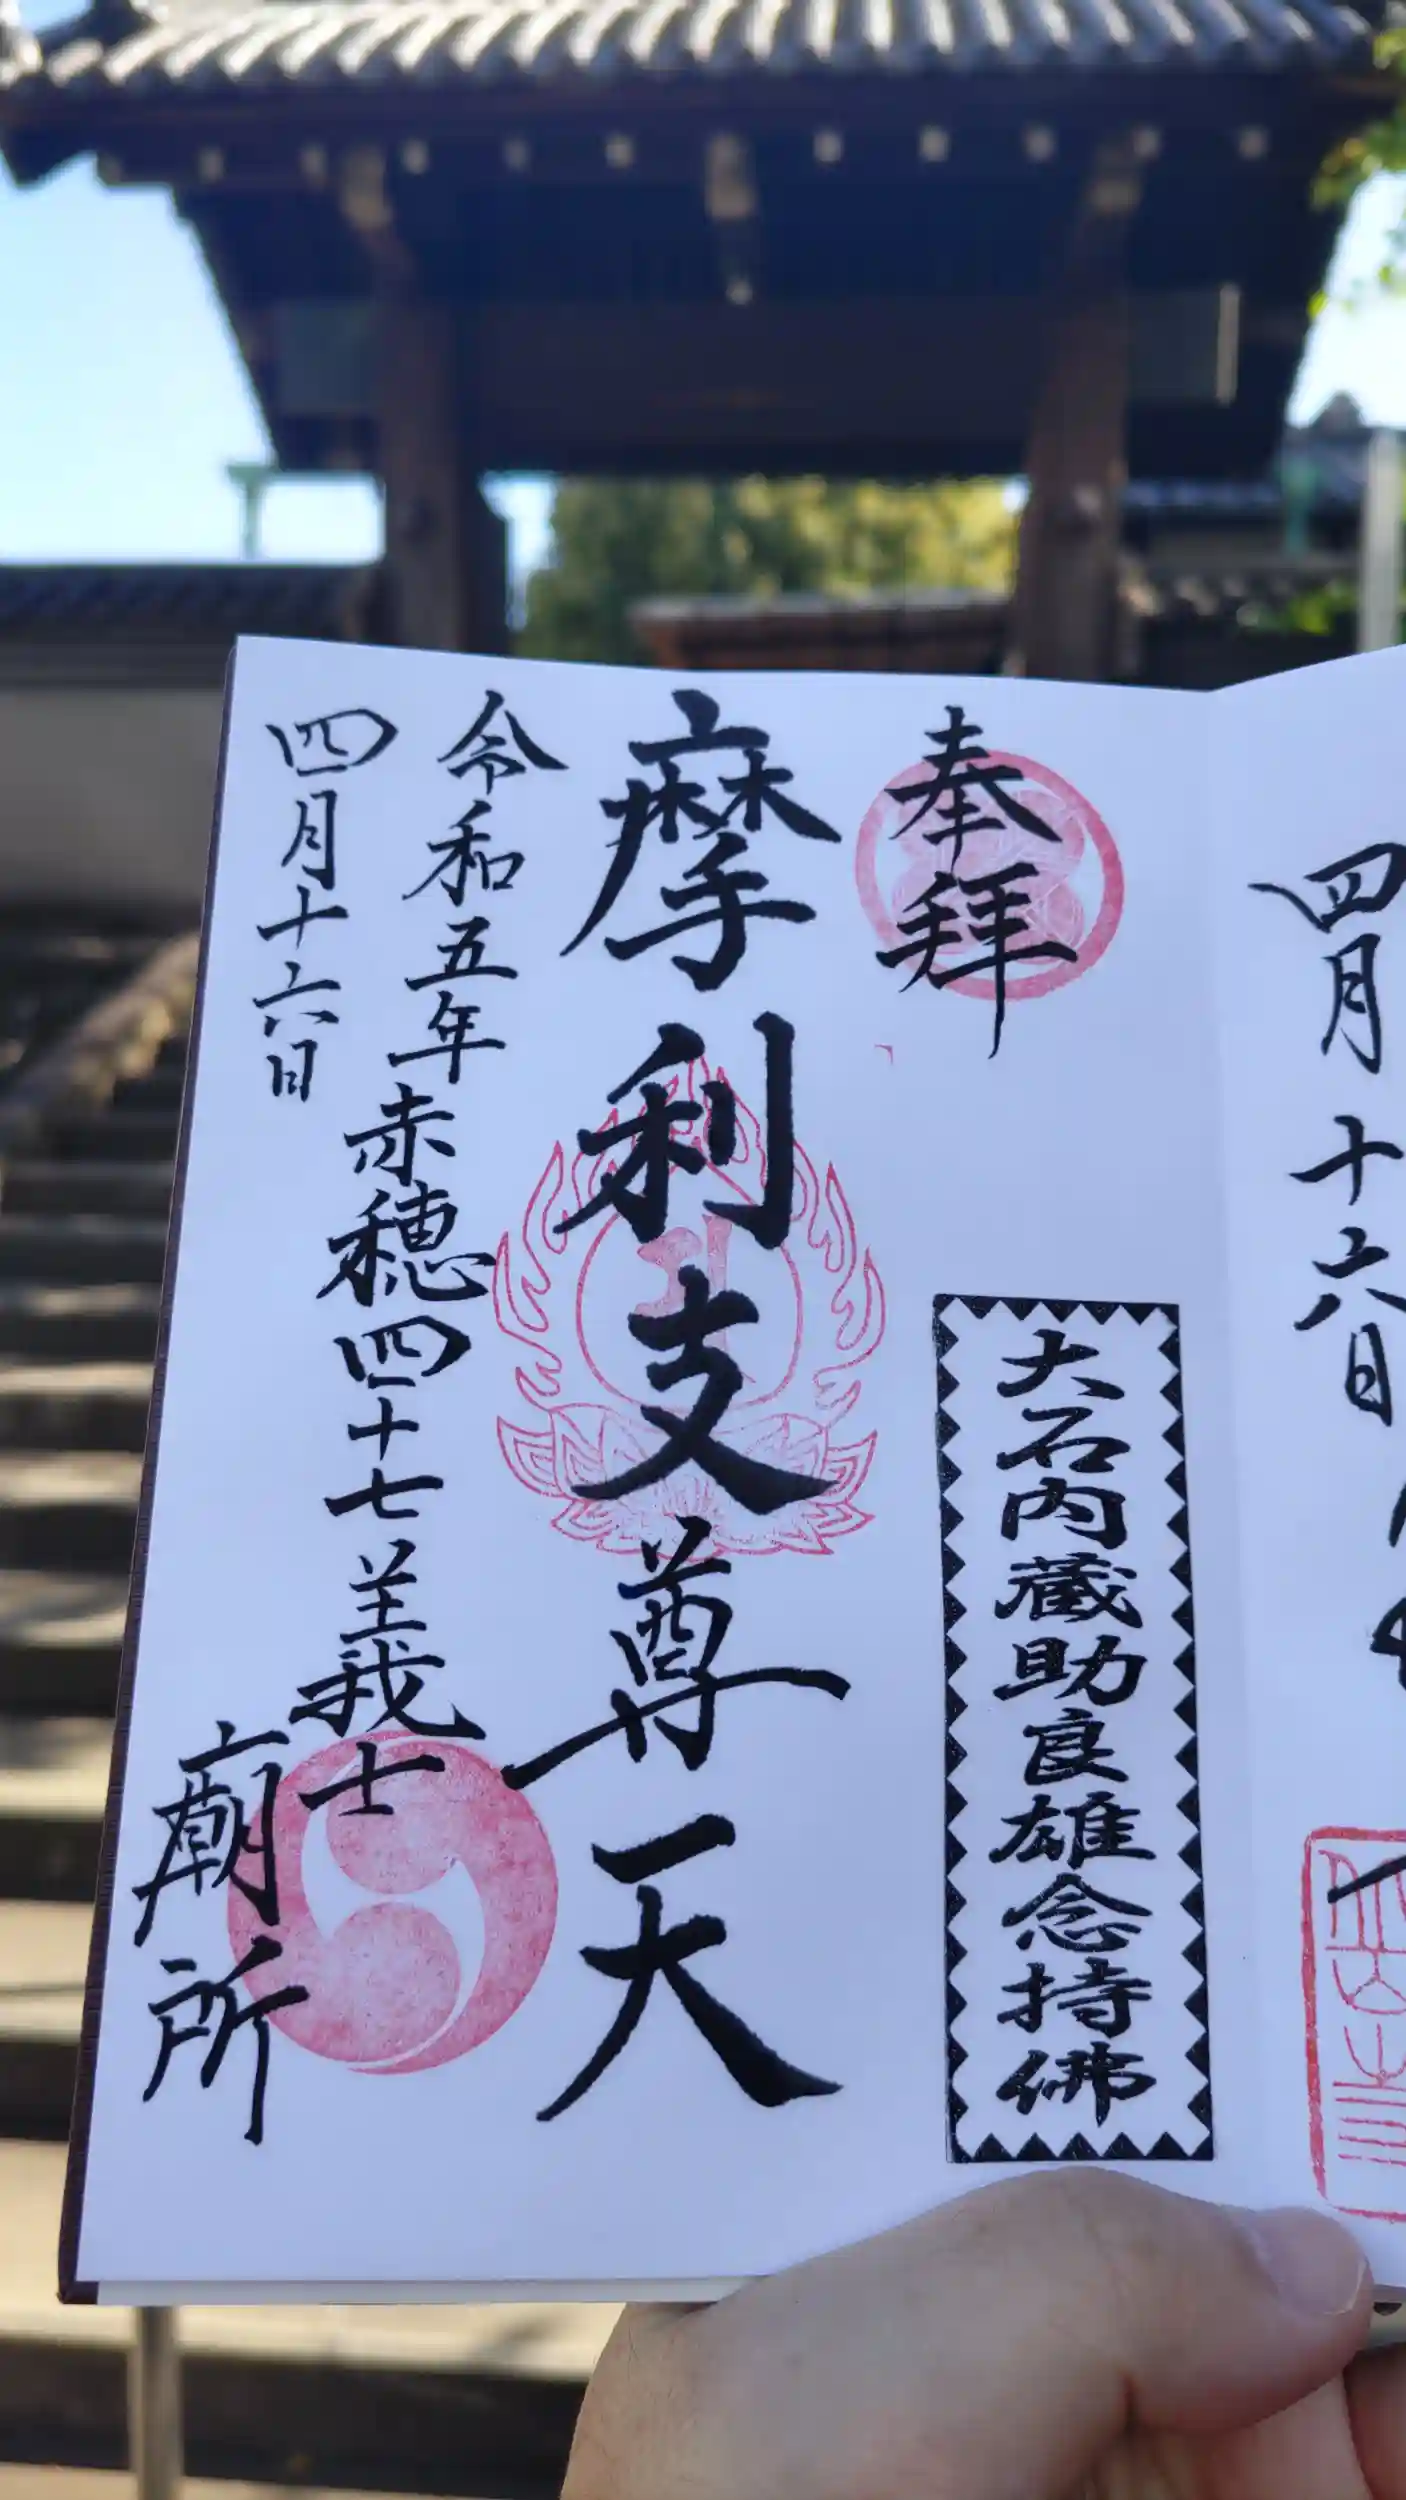 四月十六日
奉拝
大石内蔵助良雄念持佛
摩利支尊天
令和五年
四月十六日
赤穂四十七義士
廟所